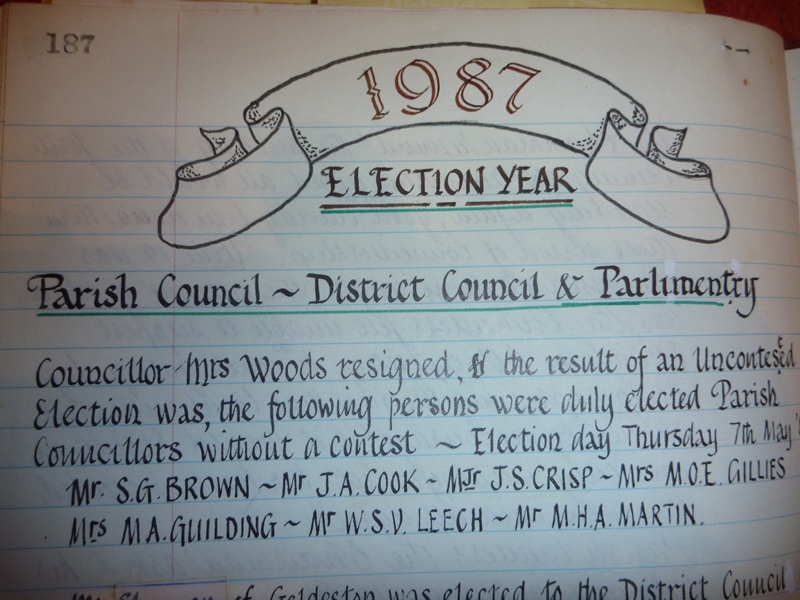 187
1987
ELECTION YEAR
Parish Council ~ District Council & Parlimentry
Councillor Mrs Woods resigned, & the result of an Uncontesed
Election was, the following persons were duly elected Parish
Councillors without a contest ~ Election day Thursday 7th May
Mr. S.G. BROWN ~ Mr J.A. COOK ~ MJr J.S. CRISP ~ Mrs M.O.E. GILLIES
Mrs M.A. GUILDING ~ Mr W.S.V. LEECH ~ Mr M.H.A. MARTIN.
of Geldeston was elected to the District Council